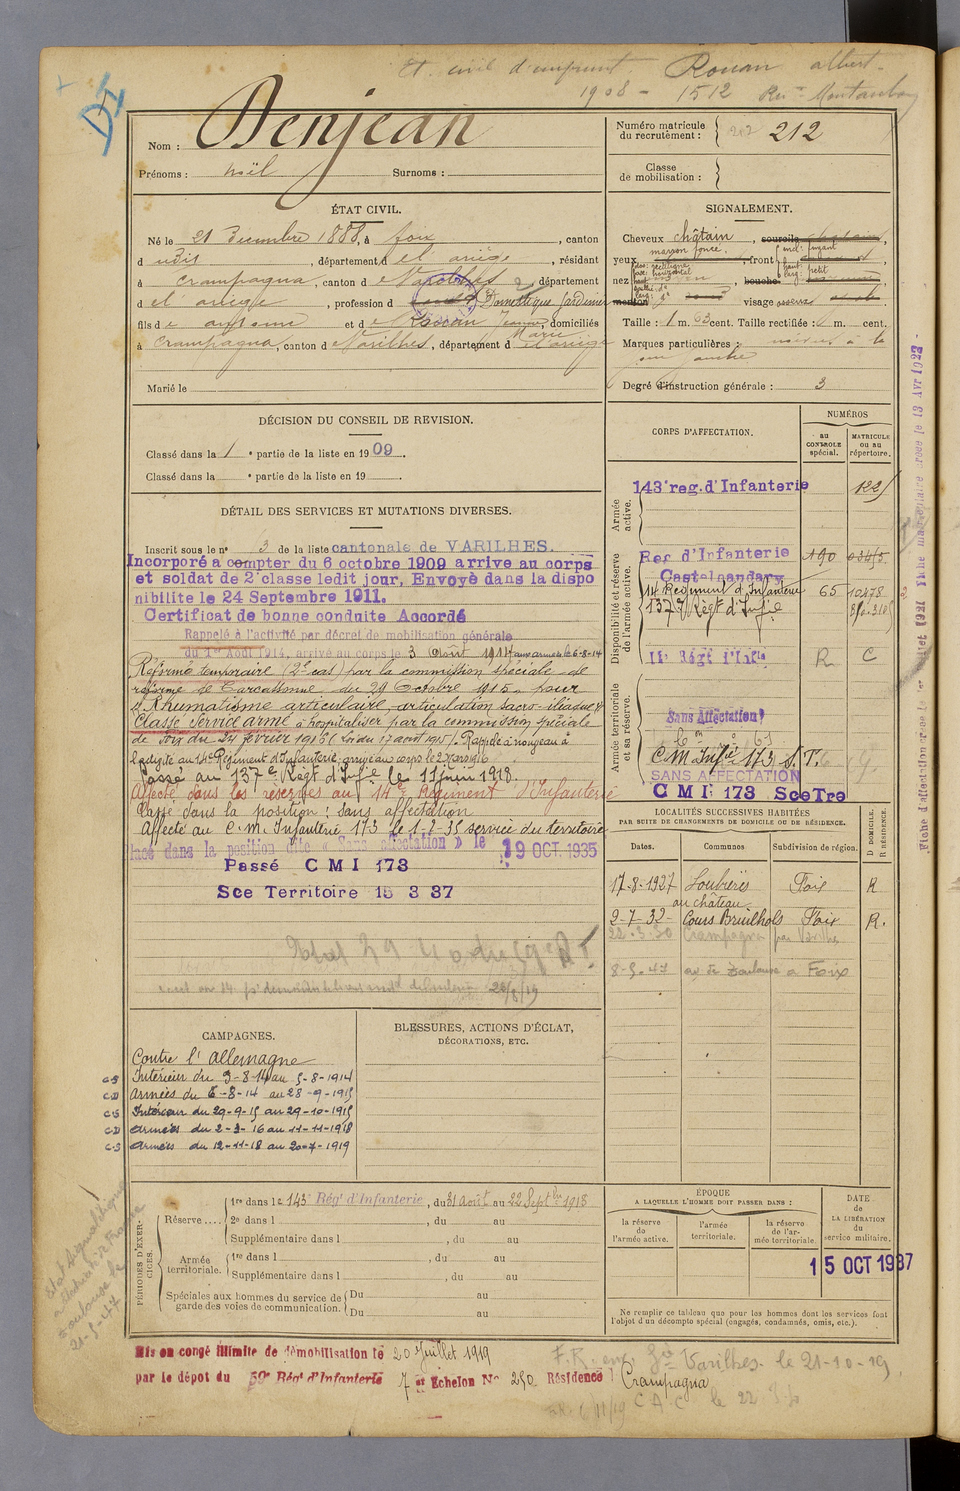 Et. civil d'emprunt. Rouan albert.
1908 - 1512 Rnt Montauban
DI
Nom : Denjean
Prénoms : noël Surnoms :
Numéro matricule du recrutement : 212 212
Classe de mobilisation :
ÉTAT CIVIL.
Né le 21 Decembre 1888, à foix, canton
d udis, département d el ariège, résidant
à crampagna, canton d e Varilhes, département
d el ariège, profession d Domestique Jardinier
fils d e antoine et d e Rouan Jeanne Marie, domiciliés
à Crampagna, canton d e Varilhes, département d el ariège
Marié le
SIGNALEMENT.
Cheveux châtain, sourcils châtain,
yeux marron foncé, front incl: fuyant haut: larg: petit
nez dos: rectiligne base: horizontal, bouche
menton visage
Taille : 1 m. 63 cent. Taille rectifiée : m. cent.
Marques particulières : à la
joue gauche
Degré d'instruction générale : 3
DÉCISION DU CONSEIL DE REVISION.
Classé dans la 1e partie de la liste en 1909.
Classé dans la e partie de la liste en 19
DÉTAIL DES SERVICES ET MUTATIONS DIVERSES.
Inscrit sous le n° 3 de la liste cantonale de VARILHES.
Incorporé a compter du 6 octobre 1909 arrive au corps
et soldat de 2e classe ledit jour, Envoyé dans la dispo
nibilite le 24 Septembre 1911.
Certificat de bonne conduite Accordé
Rappelé à l'activité par décret de mobilisation générale
du 1er Août 1914, arrivé au corps le 3 Août 1914 aux armées le 6-8-14
Réformé temporaire (2e cas) par la commission spéciale de
réforme de Carcassonne du 29 Octobre 1915 pour
"Rhumatisme articulaire, articulation sacro-iliaque"
Classé Service armé à hospitaliser par la commission spéciale
de Foix du 24 février 1916 (Loi du 17 août 1915). Rappelé à nouveau à
l'activité au 14e Régiment d'Infanterie, arrivé au corps le 2 mars 1916
Passé au 137e Régt d'Infie le 11 juin 1918.
Affecté dans les réserves au 14e Régiment d'Infanterie
Classé dans la position : sans affectation
Affecté au C.M. Infanterie 173 le 1-2-35 service du territoire
lacé dans la position dite « Sans affectation » le 19 OCT. 1935
Passé C M I 173
Sce Territoire 15 3 37
20/8/19
CORPS D'AFFECTATION.
NUMÉROS
au CONTROLE spécial.
MATRICULE ou au répertoire.
Armée active.
143e reg. d'Infanterie 122
Disponibilité et réserve de l'armée active.
Reg d'Infanterie Castelnaudary 190
14e Régiment d'Infanterie 65 10478
137e Régt d'Infie
14e Régt d'Infie R C
Armée territoriale et sa réserve.
Sans Affectation
C.M. Infie 173 S.T.
SANS AFFECTATION
C M I 173 Sce Tre
LOCALITÉS SUCCESSIVES HABITÉES
PAR SUITE DE CHANGEMENTS DE DOMICILE OU DE RÉSIDENCE.
Dates. Communes Subdivision de région. D DOMICILE. R RÉSIDENCE.
17-8-1927 Loubières au château Foix R
2-7-32 Cours Bruilhols Foix R.
22-3-30 Crampagna par Varilhes
8-5-47 av de Toulouse à Foix
CAMPAGNES.
Contre l'allemagne
CS Intérieur du 3-8-14 au 5-8-1914
CD Armées du 6-8-14 au 28-9-1915
CS Intérieur du 29-9-15 au 29-10-1915
CD Armées du 2-3-16 au 11-11-1918
CS Armées du 12-11-18 au 20-7-1919
BLESSURES, ACTIONS D'ÉCLAT,
DÉCORATIONS, ETC.
PÉRIODES D'EXERCICES.
Réserve .... 1re dans le 143e Régt d'Infanterie, du 31 août au 22 Septbre 1913
2e dans l , du au
Supplémentaire dans l , du au
Armée territoriale. 1re dans l , du au
Supplémentaire dans l , du au
Spéciales aux hommes du service de garde des voies de communication. Du au
Du au
ÉPOQUE
A LAQUELLE L'HOMME DOIT PASSER DANS :
la réserve de l'armée active.
l'armée territoriale.
la réserve de l'armée territoriale.
DATE de LA LIBÉRATION du service militaire.
15 OCT 1937
Ne remplir ce tableau que pour les hommes dont les services font
l'objet d'un décompte spécial (engagés, condamnés, omis, etc.).
Mis en congé illimité de démobilisation le 20 Juillet 1919
par le dépot du 59e Régt d'Infanterie 7e Echelon No 250 Résidence Crampagna
F.R. env. Gie Varilhes le 21-10-19
C A C le 22
Toulouse le
21-5-47